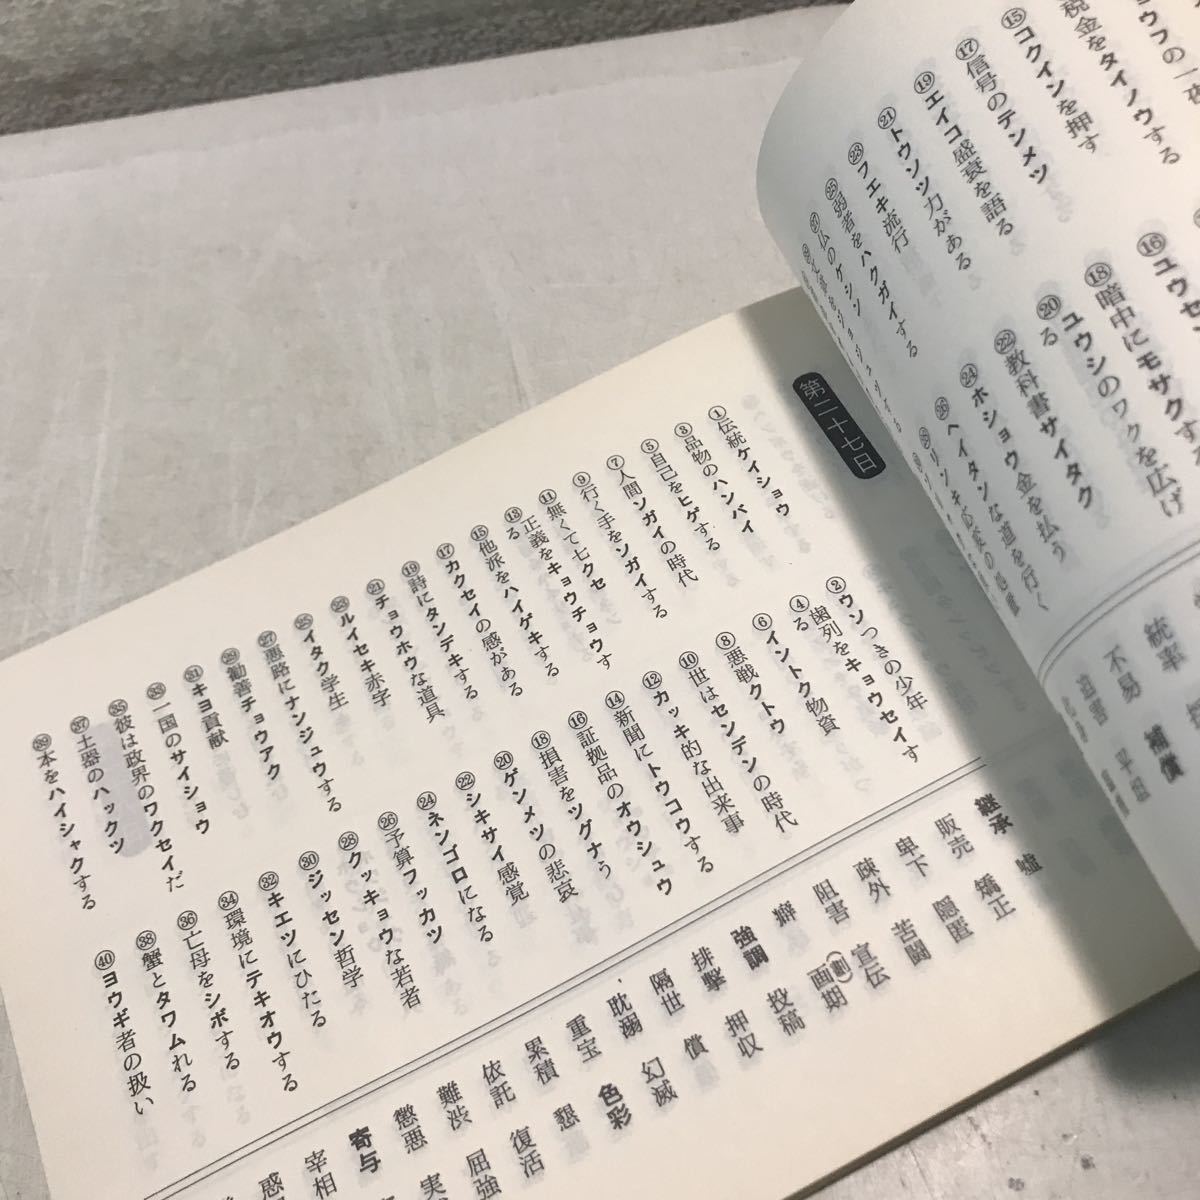 税金をタイノウする
⑮コクインを押す
⑰信号のテンメツ
⑲エイコ盛衰を語る
㉑トウソツ力がある
㉓フエキ流行
㉕弱者をハクガイする
㉗仏のケシン
⑯ユウセ
⑱暗中にモサクする
⑳ユウシのワクを広げ
る
㉒教科書サイタク
㉔ホショウ金を払う
㉖ヘイタンな道を行く
統率
不易
補償
迫害
平坦
第二十七日
①伝統ケイショウ
③品物のハンバイ
⑤自己をヒゲする
⑦人間ソガイの時代
⑨行く手をソガイする
⑪無くて七クセ
⑬正義をキョウチョウす
る
⑮他派をハイゲキする
⑰カクセイの感がある
⑲詩にタンデキする
㉑チョウホウな道具
㉓ルイセキ赤字
㉕イタク学生
㉗悪路にナンジュウする
㉙勧善チョウアク
㉛キヨ貢献
㉝一国のサイショウ
㉟彼は政界のワクセイだ
㊲土器のハックツ
㊴本をハイシャクする
②ウソつきの少年
④歯列をキョウセイす
る
⑥イントク物資
⑧悪戦クトウ
⑩世はセンデンの時代
⑫カッキ的な出来事
⑭新聞にトウコウする
⑯証拠品のオウシュウ
⑱損害をツグナう
⑳ゲンメツの悲哀
㉒シキサイ感覚
㉔ネンゴロになる
㉖予算フッカツ
㉘クッキョウな若者
㉚ジッセン哲学
㉜キエツにひたる
㉞環境にテキオウする
㊱亡母をシボする
㊳蟹とタワムれる
㊵ヨウギ者の扱い
継承
販売
卑下
疎外
阻害
癖
強調
排撃
隔世
耽溺
重宝
累積
依託
難渋
懲悪
寄与
宰相
嘘
矯正
隠匿
苦闘
宣伝
画(劃)期
投稿
押収
償
幻滅
色彩
懇
復活
屈強